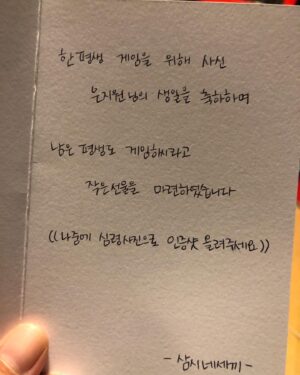 한평생 게임을 위해 사신
은지원님의 생일을 축하하며
남은 평생도 게임하시라고
작은선물을 마련하였습니다
((나중에 심령사진으로 인증샷 올려주세요))
- 삼시네세끼 -